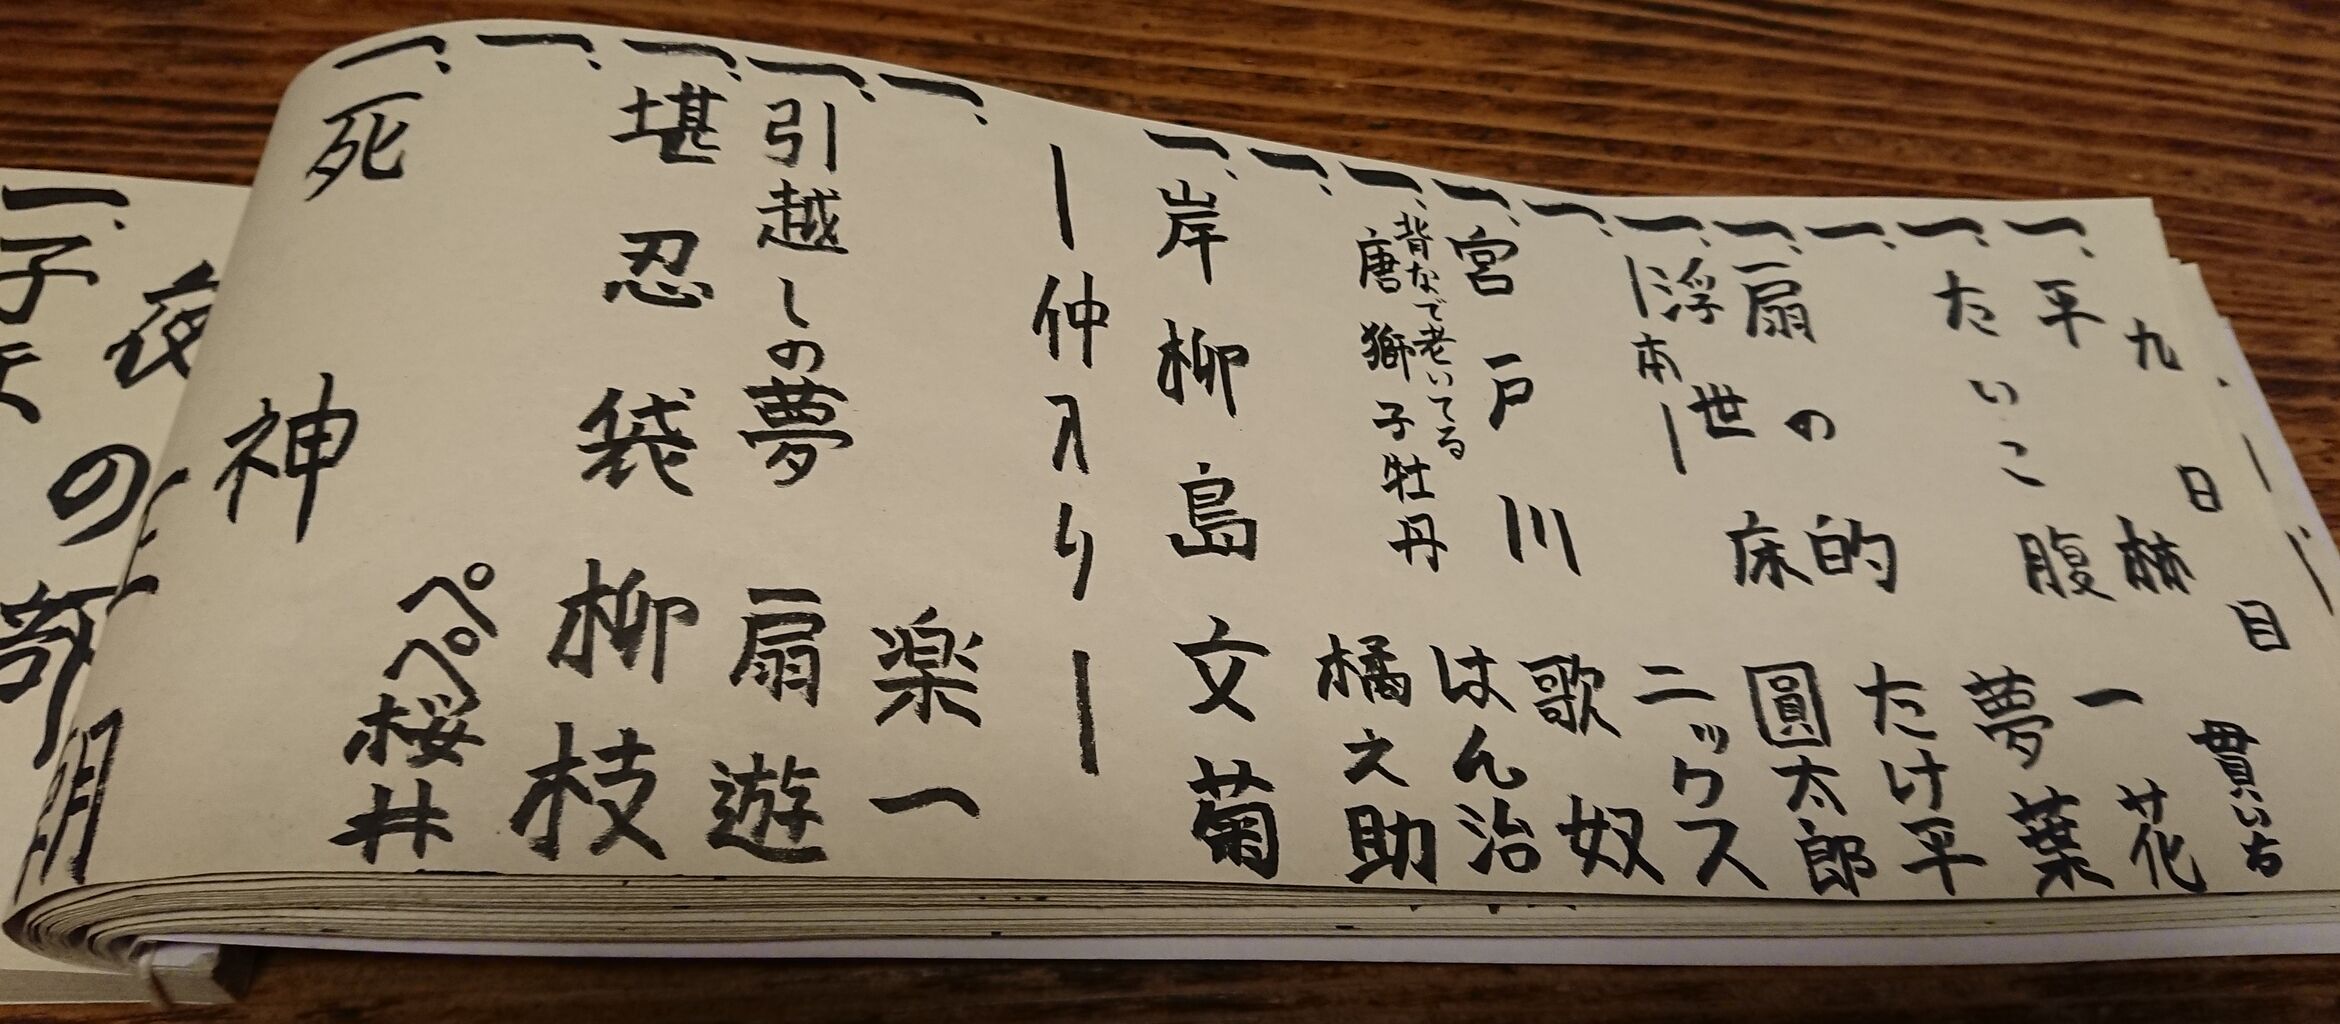 九日目
一、平林 貫いち
一、たいこ腹 一花
一、 夢葉
一、扇の的 たけ平
一、浮世床 ー本ー 圓太郎
一、 ニックス
一、宮戸川 歌奴
一、背なで老いてる唐獅子牡丹 はん治
一、 橘之助
一、岸柳島 文菊
ー仲入りー
一、 楽一
一、引越しの夢 扇遊
一、堪忍袋 柳枝
一、 ペペ桜井
一、死神
夜の部